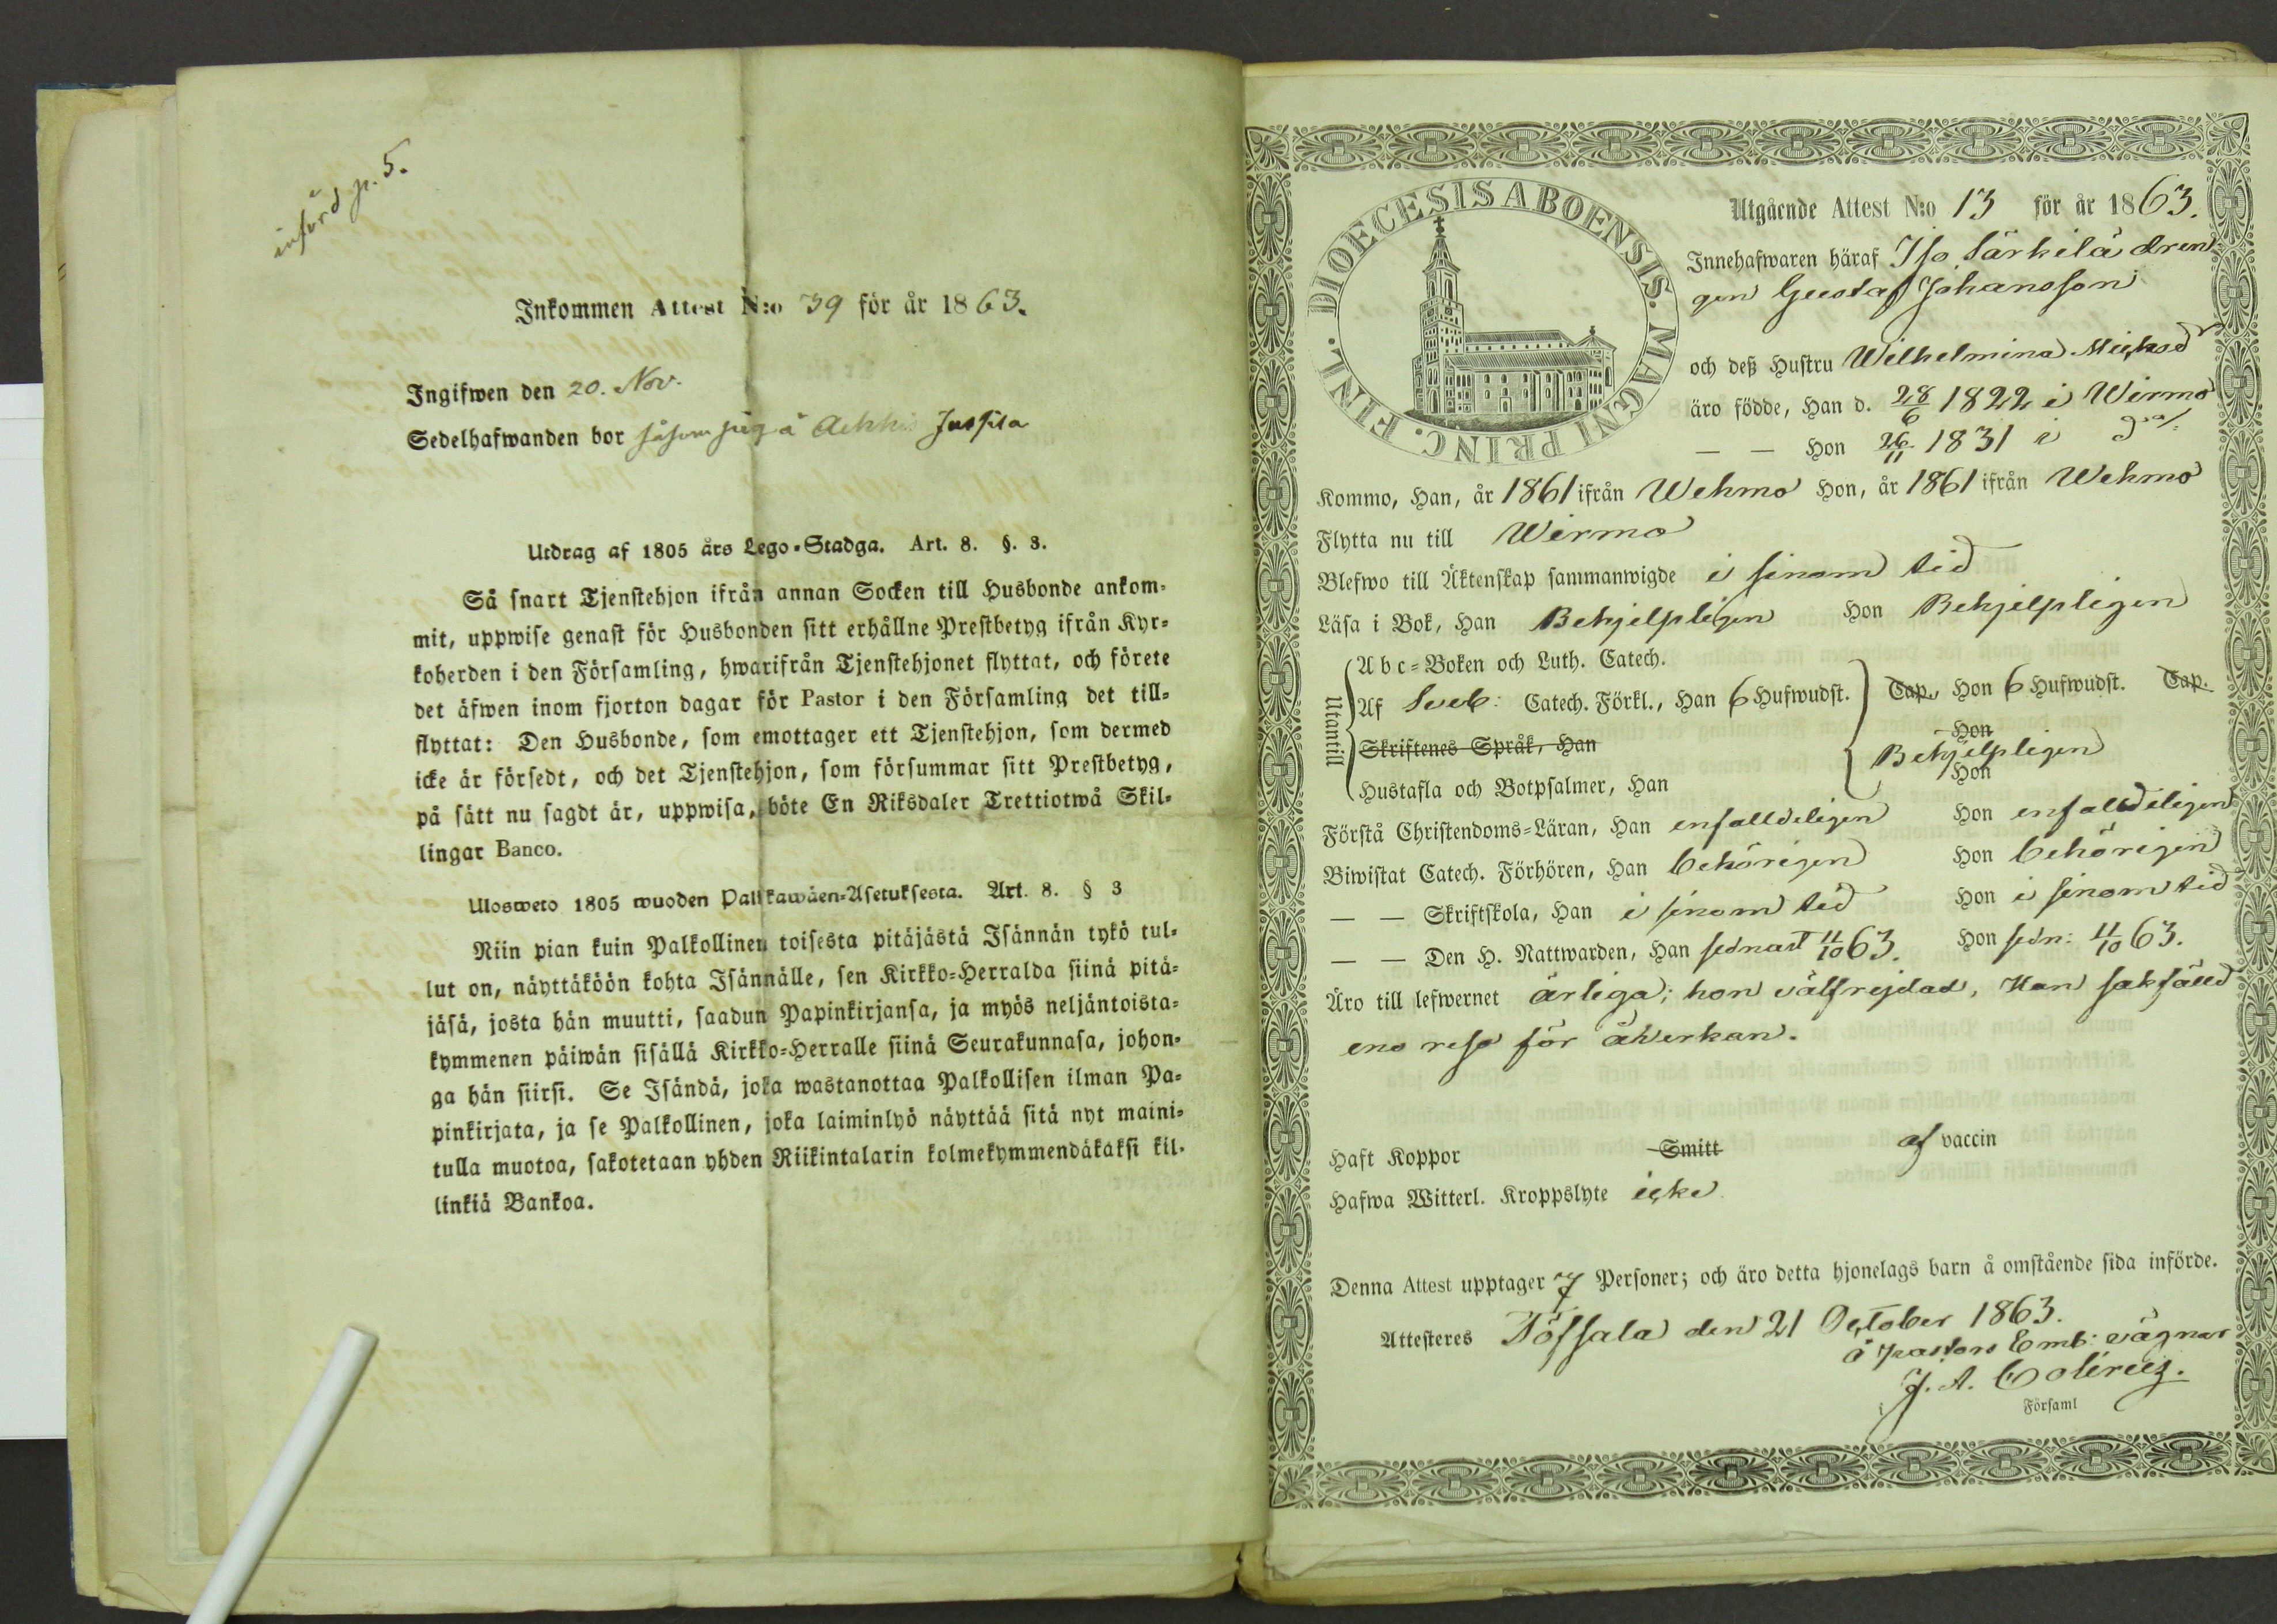 införd p. 5.
Inkommen Attest N:o 39 för år 1863.
Ingifwen den 20. Nov.
Sedelhafwanden bor såsom pig å Juspila
Utdrag af 1805 års Lego-Stadga. Art. 8. §. 3.
Så snart Tjenstehjon ifrån annan Socken till Husbonde ankom-
mit, uppwise genast för Husbonden sitt erhållne Prestbetyg ifrån Kyr-
koherden i den Församling, hwarifrån Tjenstehjonet flyttat, och förete
det äfwen inom fjorton dagar för Pastor i den Församling det till-
flyttat: Den Husbonde, som emottager ett Tjenstehjon, som dermed
icke är försedt, och det Tjenstehjon, som försummar sitt Prestbetyg,
på sätt nu sagdt är, uppwisa, böte En Riksdaler Trettiotwå Skil-
lingar Banco.
Ulosweto 1805 wuoden Palkkawäen-Asetuksesta. Art. 8. § 3
Niin pian kuin Palkollinen toisesta pitäjästä Isännän tykö tul-
lut on, näyttäköön kohta Isännälle, sen Kirkko-Herralda siinä pitä-
jäsä, josta hän muutti, saadun Papinkirjansa, ja myös neljäntoista-
kymmenen päiwän sisällä Kirkko-Herralle siinä Seurakunnasa, johon-
ga hän siirsi. Se Isändä, joka wastanottaa Palkollisen ilman Pa-
pinkirjata, ja se Palkollinen, joka laiminlyö näyttää sitä nyt maini-
tulla muotoa, sakotetaan yhden Riikintalarin kolmekymmendäkaksi kil-
linkiä Bankoa.
DIOECESIS ABOENSIS. MAGNI PRINC. FINL.
Utgående Attest N:o 13 för år 1863.
Innehafwaren häraf Iso Särkilä dren
gen Gustaf Johansson
och deß Hustru Wilhelmina Mickosd
äro födde, Han d. 28/6 1822 i Wirmo
— — Hon 26/11 1831 i do
Kommo, Han, år 1861 ifrån Wehmo Hon, år 1861 ifrån Wehmo
Flytta nu till Wirmo
Blefwo till Äktenskap sammanwigde i sinom tid
Läsa i Bok, Han Behjelpligen Hon Behjelpligen
Utantill
Abc-Boken och Luth. Catech.
Af Sveb: Catech. Förkl., Han 6 Hufwudst. Cap., Hon 6 Hufwudst. Cap.
Skriftenes Språk, Han Hon
Behjelpligen
Hustafla och Botpsalmer, Han Hon
Förstå Christendoms-Läran, Han enfalldeligen Hon enfalldeligen
Biwistat Catech. Förhören, Han behörigen Hon behörigen
— — Skriftskola, Han i sinom tid Hon i sinom tid
— — Den H. Nattwarden, Han sednast 11/10 63. Hon sedn: 11/10 63.
Äro till lefwernet ärliga; hon välfrejdad, Han sakfälld
ena resa för åverkan.
Haft Koppor Smitt af vaccin
Hafwa Witterl. Kroppslyte icke
Denna Attest upptager 7 Personer; och äro detta hjonelags barn å omstående sida införde.
Attesteres Töfsala den 21 October 1863.
å pastors Emb: vägnar
J. A. Colérus.
i Församl